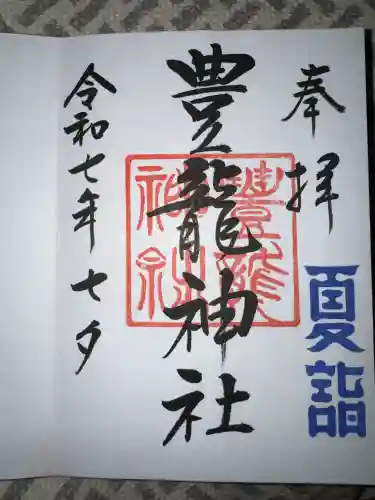 奉拝
夏詣
豊龍神社
豊龍
神社
令和七年 七夕